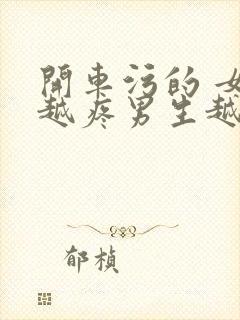 開車污的 女
越疼男生越
郁楨